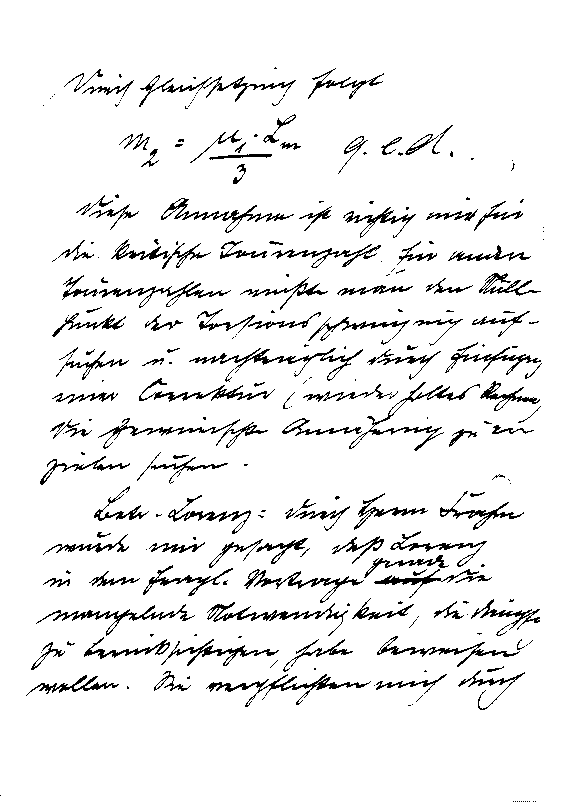 Durch Gleichsetzung folgt
m₂ = μ₁ · Lm / 3 q. e. d.
Diese Annahme ist richtig nur für
die kritische Tourenzahl, für andere
Tourenzahlen müßte man den Null-
punkt der Torsionsschwingung auf-
suchen u. nachträglich durch Einfügung
einer Correktur (wiederholtes Rechnen)
die gewünschte Annäherung zu er
zielen suchen.
Betr. Lorenz: durch Herrn Frahm
wurde mir gesagt, daß Lorenz
in dem fragl. Vortrage gerade die
mangelnde Notwendigkeit, die
zu berücksichtigen, habe beweisen
wollen. Sie verpflichten mich durch